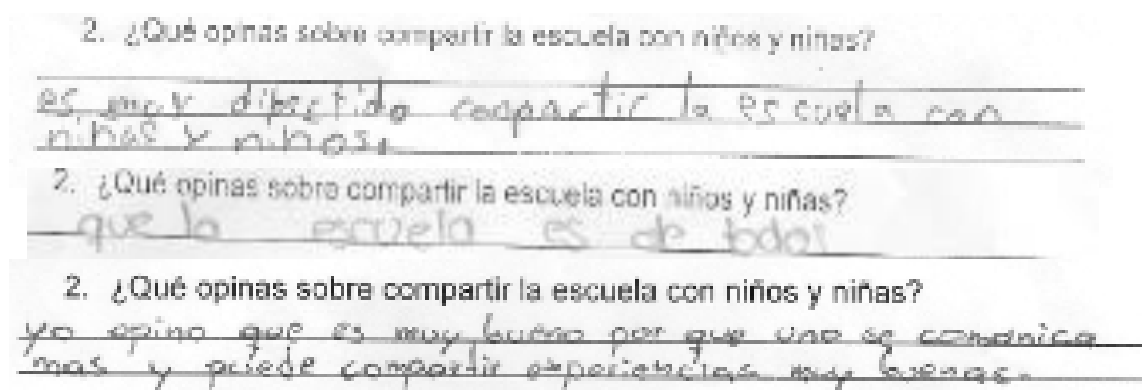 2. ¿Qué opinas sobre compartir la escuela con niños y niñas?
es muy dibertido compartir la escuela con
niñas y niños.
2. ¿Qué opinas sobre compartir la escuela con niños y niñas?
que la escuela es de todos
2. ¿Qué opinas sobre compartir la escuela con niños y niñas?
yo opino que es muy bueno por que uno se comunica
mas y puede compartir experiencias muy buenas.